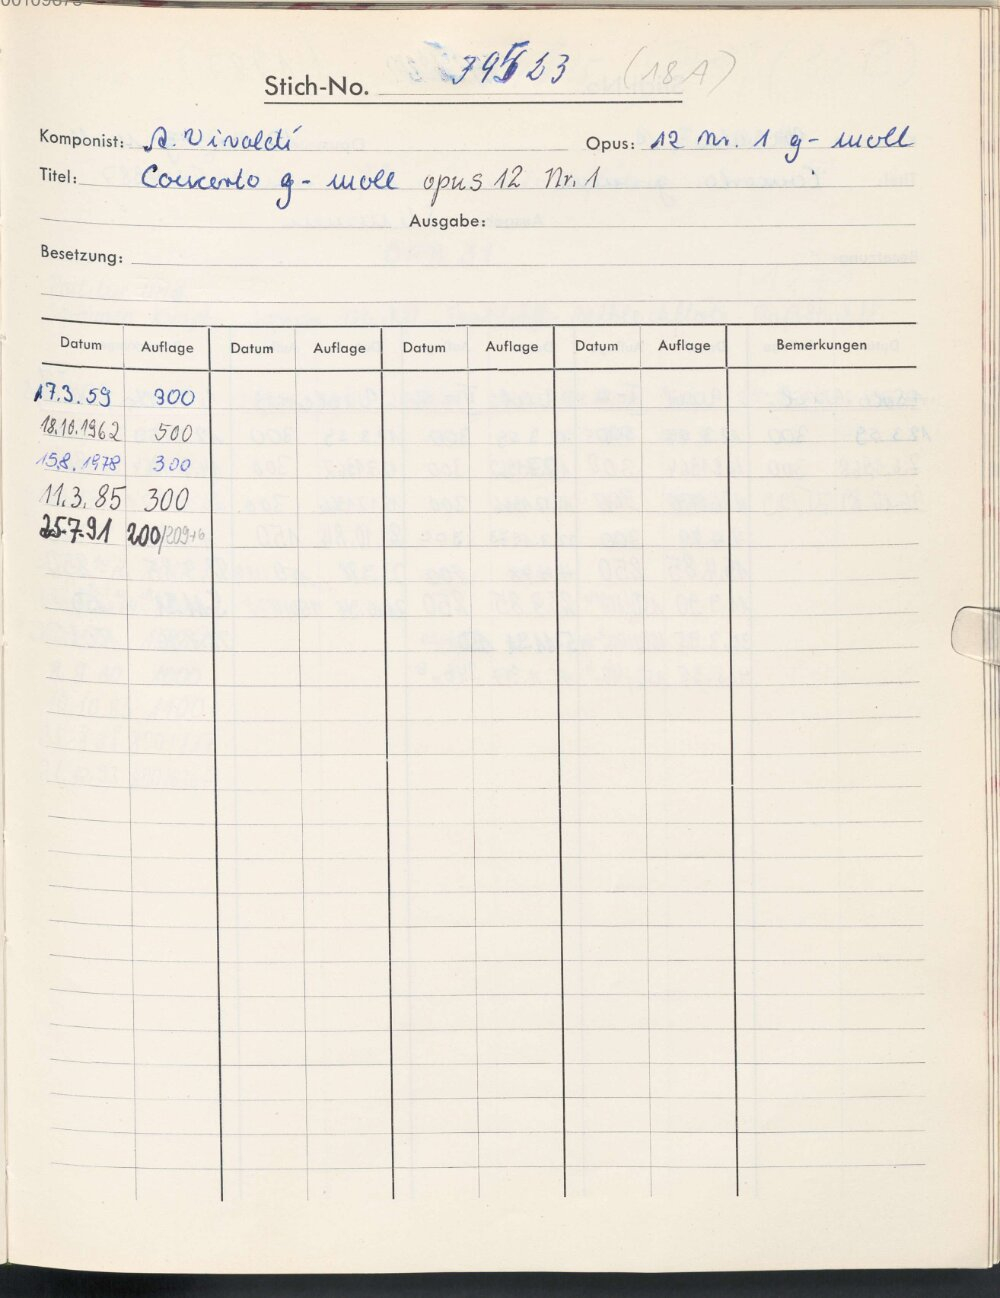 00109873
Stich-No. 39523 (18A)
Komponist: A. Vivaldi Opus: 12 Nr. 1 g-moll
Titel: Concerto g-moll opus 12 Nr. 1
Ausgabe:
Besetzung:
Datum Auflage Datum Auflage Datum Auflage Datum Auflage Bemerkungen
17.3.59 300
18.10.1962 500
15.8.1978 300
11.3.85 300
25.7.91 200/209+6